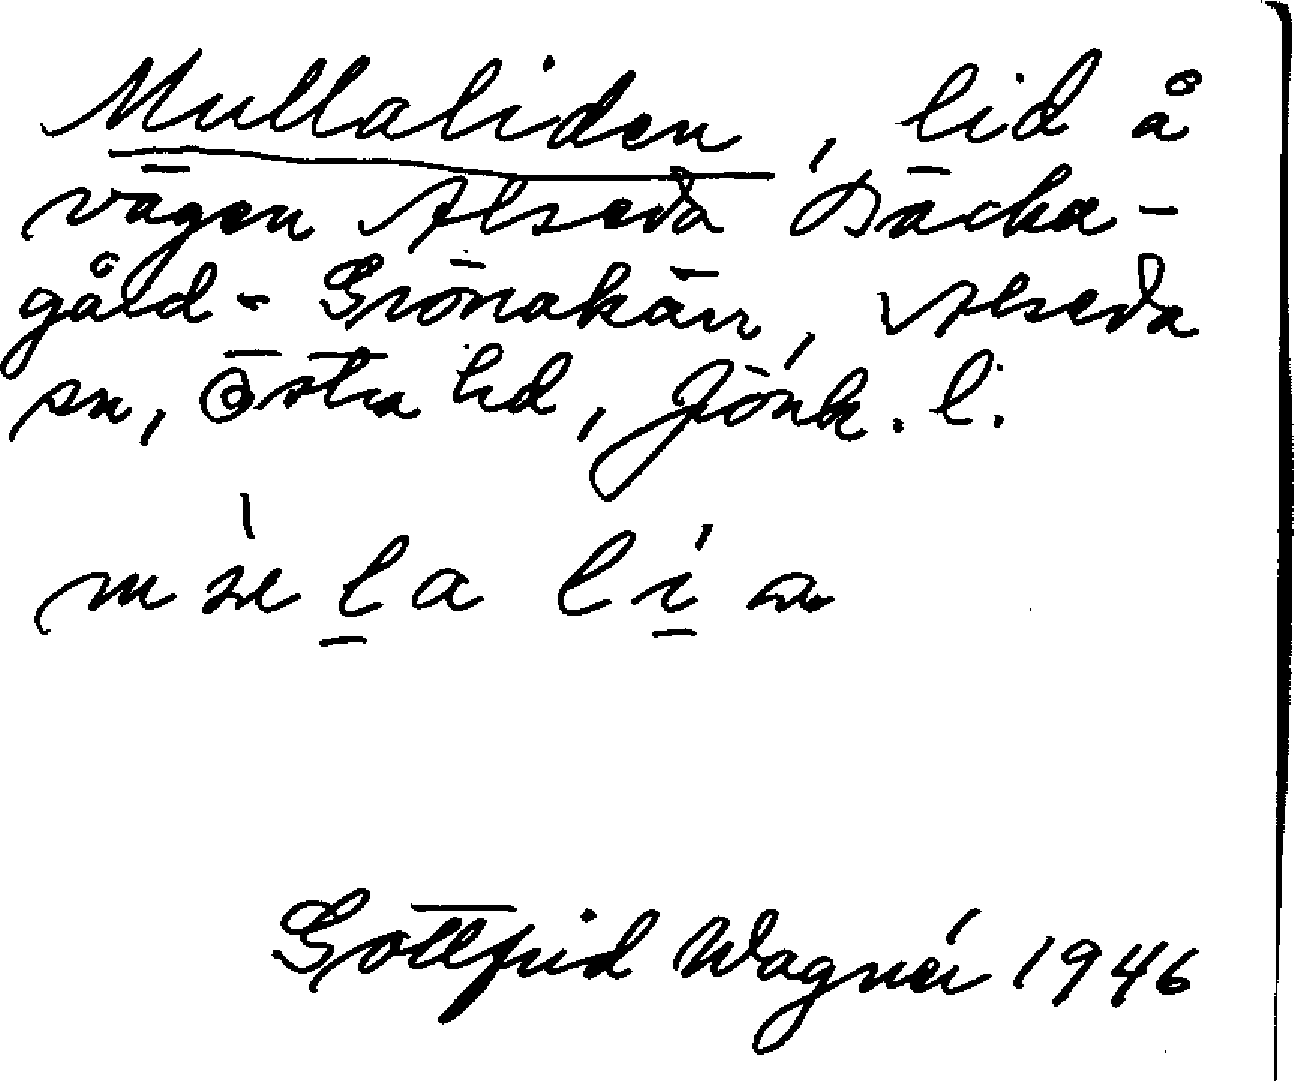 Mullaliden, lid å
vägen Alseda Bäcka-
gård - Grönakärr, Alseda
sn, Östra hd, Jönk. l.
Gottfrid Wagnér 1946